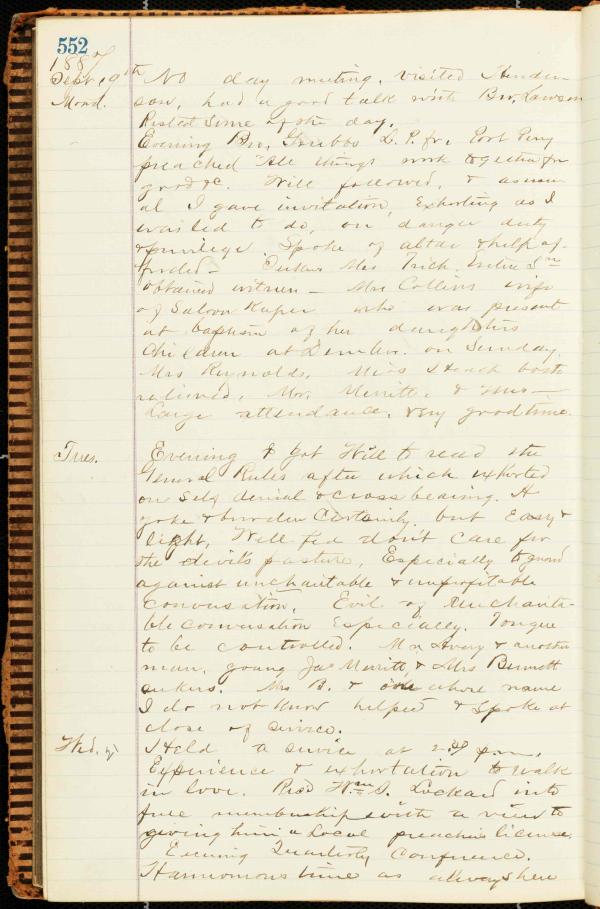 552
1887
Sept. 19th No day meeting. visited Hender-
Mond. son, had a good talk with Bro. Lawson
Rested some of the day.
Evening Bro. Grubbs L. P. fr. Port Perry
preached "All things work together for
good &c. Will followed, & as usu
al I gave invitation, Exhorting as I
was led to do, on danger duty
& privilege. Spoke of altar & help af-
forded - Mrs Trich. Entire
obtained witness - Mrs Collins wife
of Saloon Keeper who was present
at baptism of her daughters
Children at on Sunday.
Mrs Reynolds. Miss both
relieved. Mr. Merritt. & Mrs —
Large attendance. very good time.
Tues. Evening I got Will to read the
General Rules after which exhorted
on self denial & cross bearing. A
yoke & burden Certainly, but Easy &
light, Well fed don't care for
the devil's pasture, Especially to guard
against uncharitable & unprofitable
conversation. Evil of uncharita-
ble conversation Especially. Tongue
to be controlled. Mr Avery & another
man, young Jas Merritt & Mrs Burnett
seekers. Mrs B. & one whose name
I do not know helped & spoke at
close of service.
Wed. 21 Held a service at 2.30 p.m.
Experience & exhortation to walk
in love. Recd Wm S. Lockard into
full membership with a view to
giving him a local preachers license.
Evening Quarterly Conference.
Harmonious time as always here